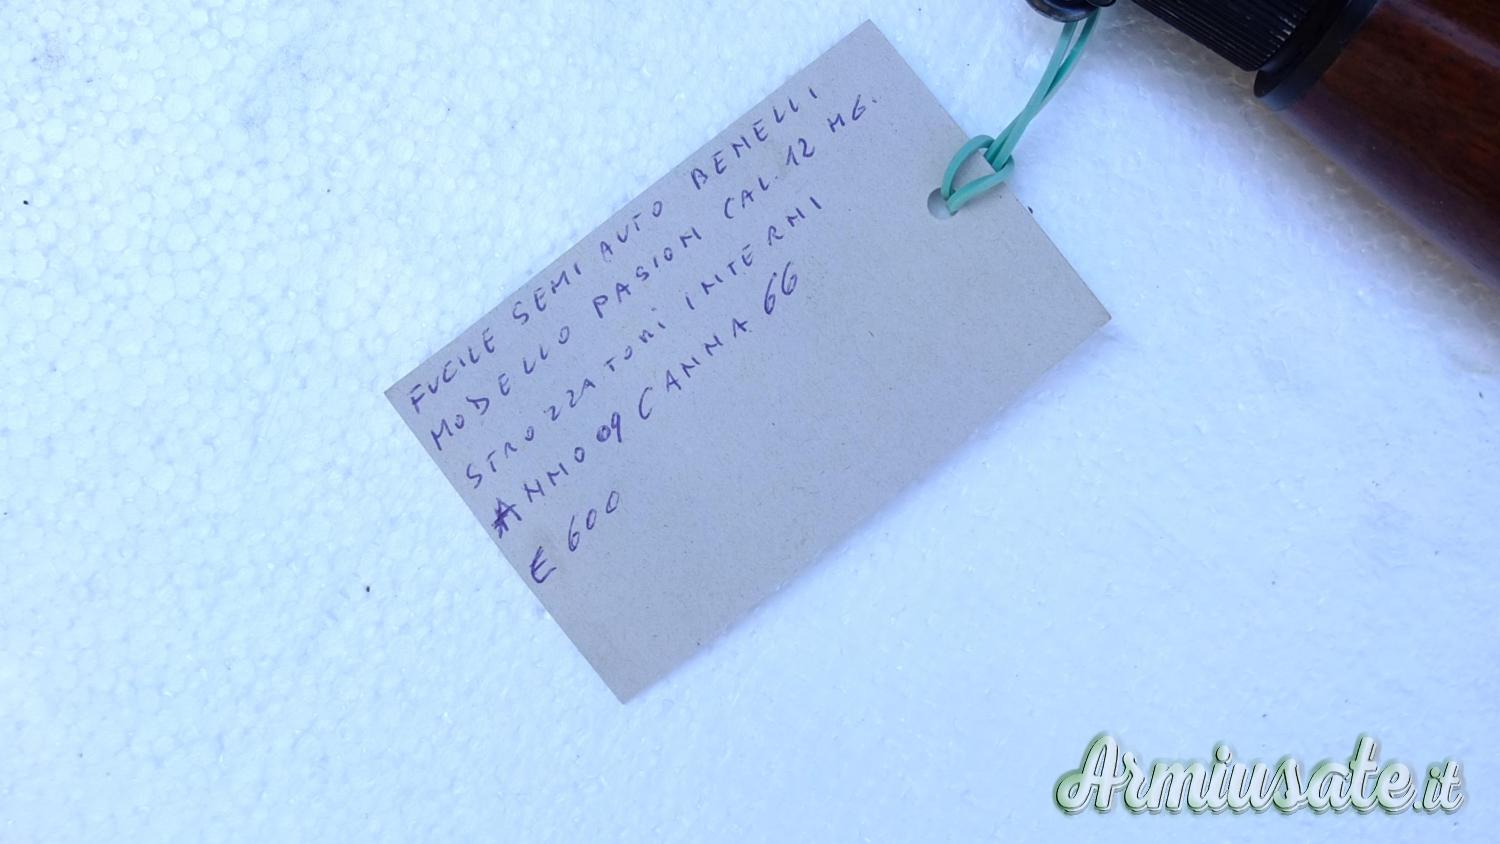 FUCILE SEMI AUTO BENELLI
MODELLO PASION CAL. 12 MG.
STROZZATORI INTERNI
ANNO 09 CANNA 66
€ 600
Armiusate.it